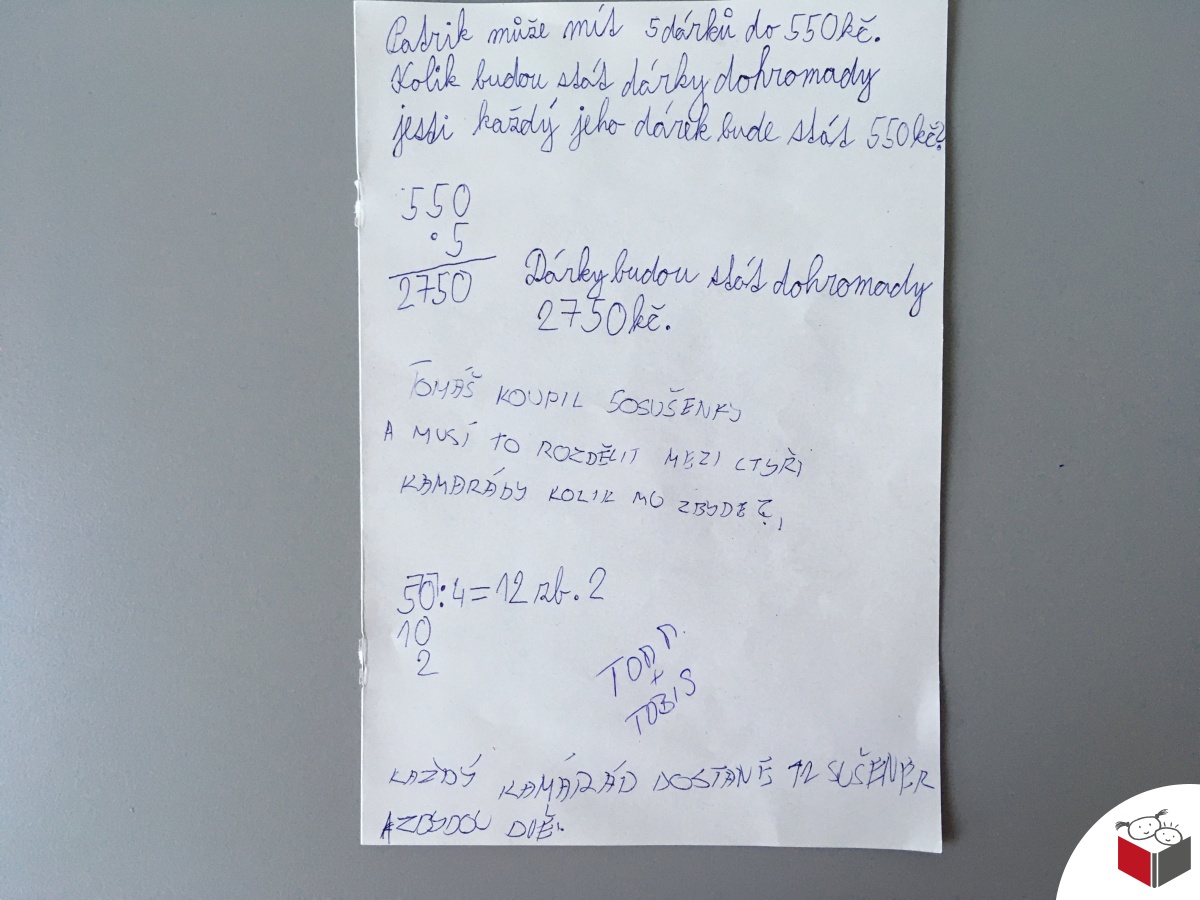 Patrik může mít 5 dárků do 550kč.
Kolik budou stát dárky dohromady
jestli každý jeho dárek bude stát 550kč?
550
·5
2750
Dárky budou stát dohromady
2750kč.
TOMÁŠ KOUPIL 50SUŠENKY
A MUSÍ TO ROZDĚLIT MEZI CTYŘI
KAMARÁDY KOLIK MU ZBYDE?
50:4=12 zb. 2
10
2
TOM
+
TOBIS
KAŽDÝ KAMÁRÁD DOSTANE 12 SUŠENEK
A ZBYDOU DVĚ.